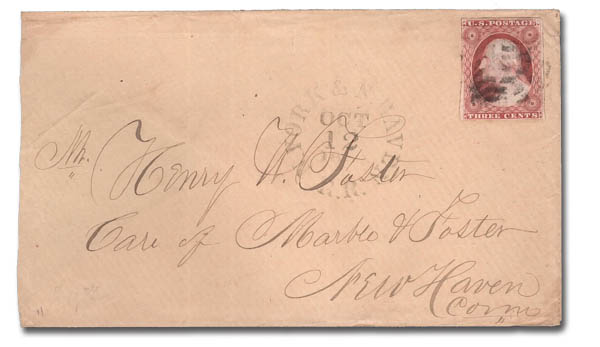 U.S. POSTAGE
THREE CENTS
YORK & N. HAVEN
OCT
12
R.R.
Mr. Henry W. Foster
Care of Marble & Foster
New Haven
Conn